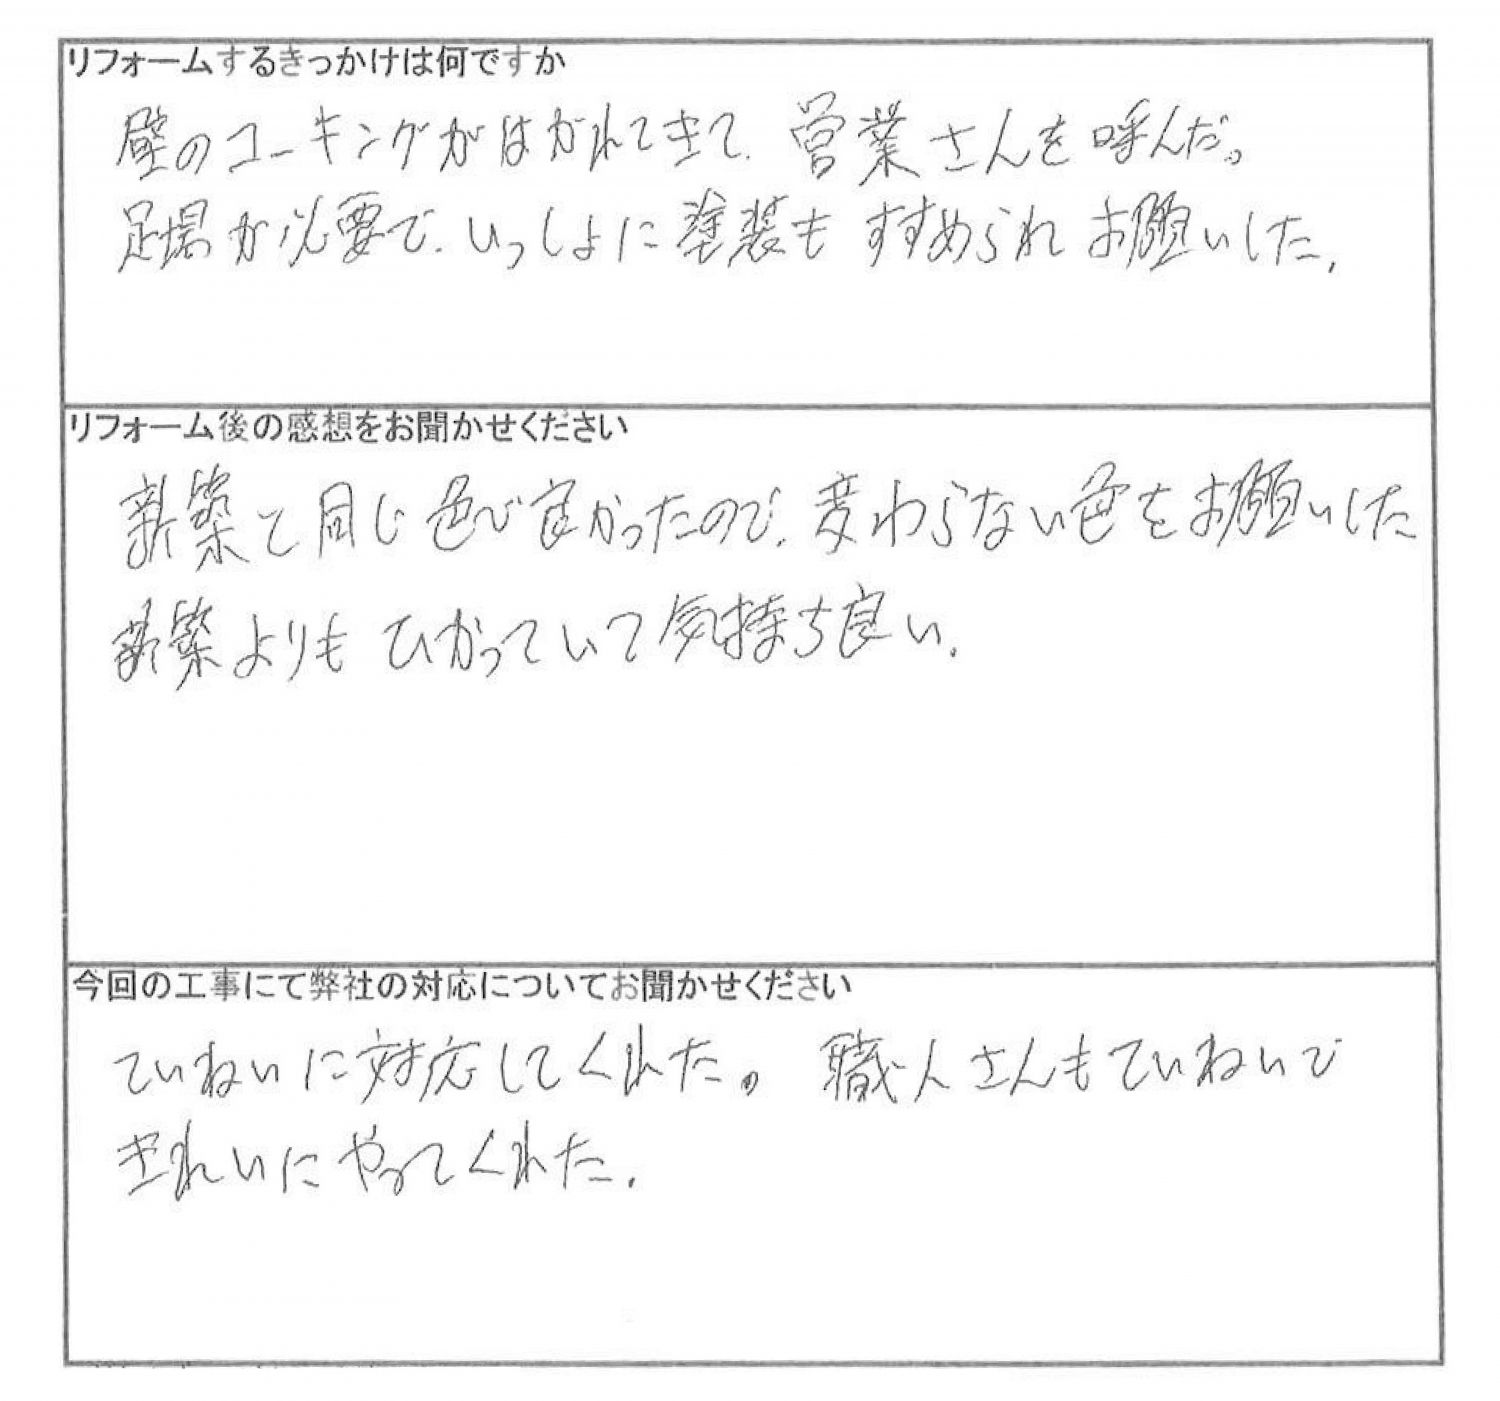 リフォームするきっかけは何ですか
壁のコーキングがはがれてきて、営業さんを呼んだ。
足場が必要で、いっしょに塗装もすすめられお願いした。
リフォーム後の感想をお聞かせください
新築と同じ色で良かったので、変わらない色をお願いした
新築よりもひかっていて気持ち良い。
今回の工事にて弊社の対応についてお聞かせください
ていねいに対応してくれた。職人さんもていねいで
きれいにやってくれた。